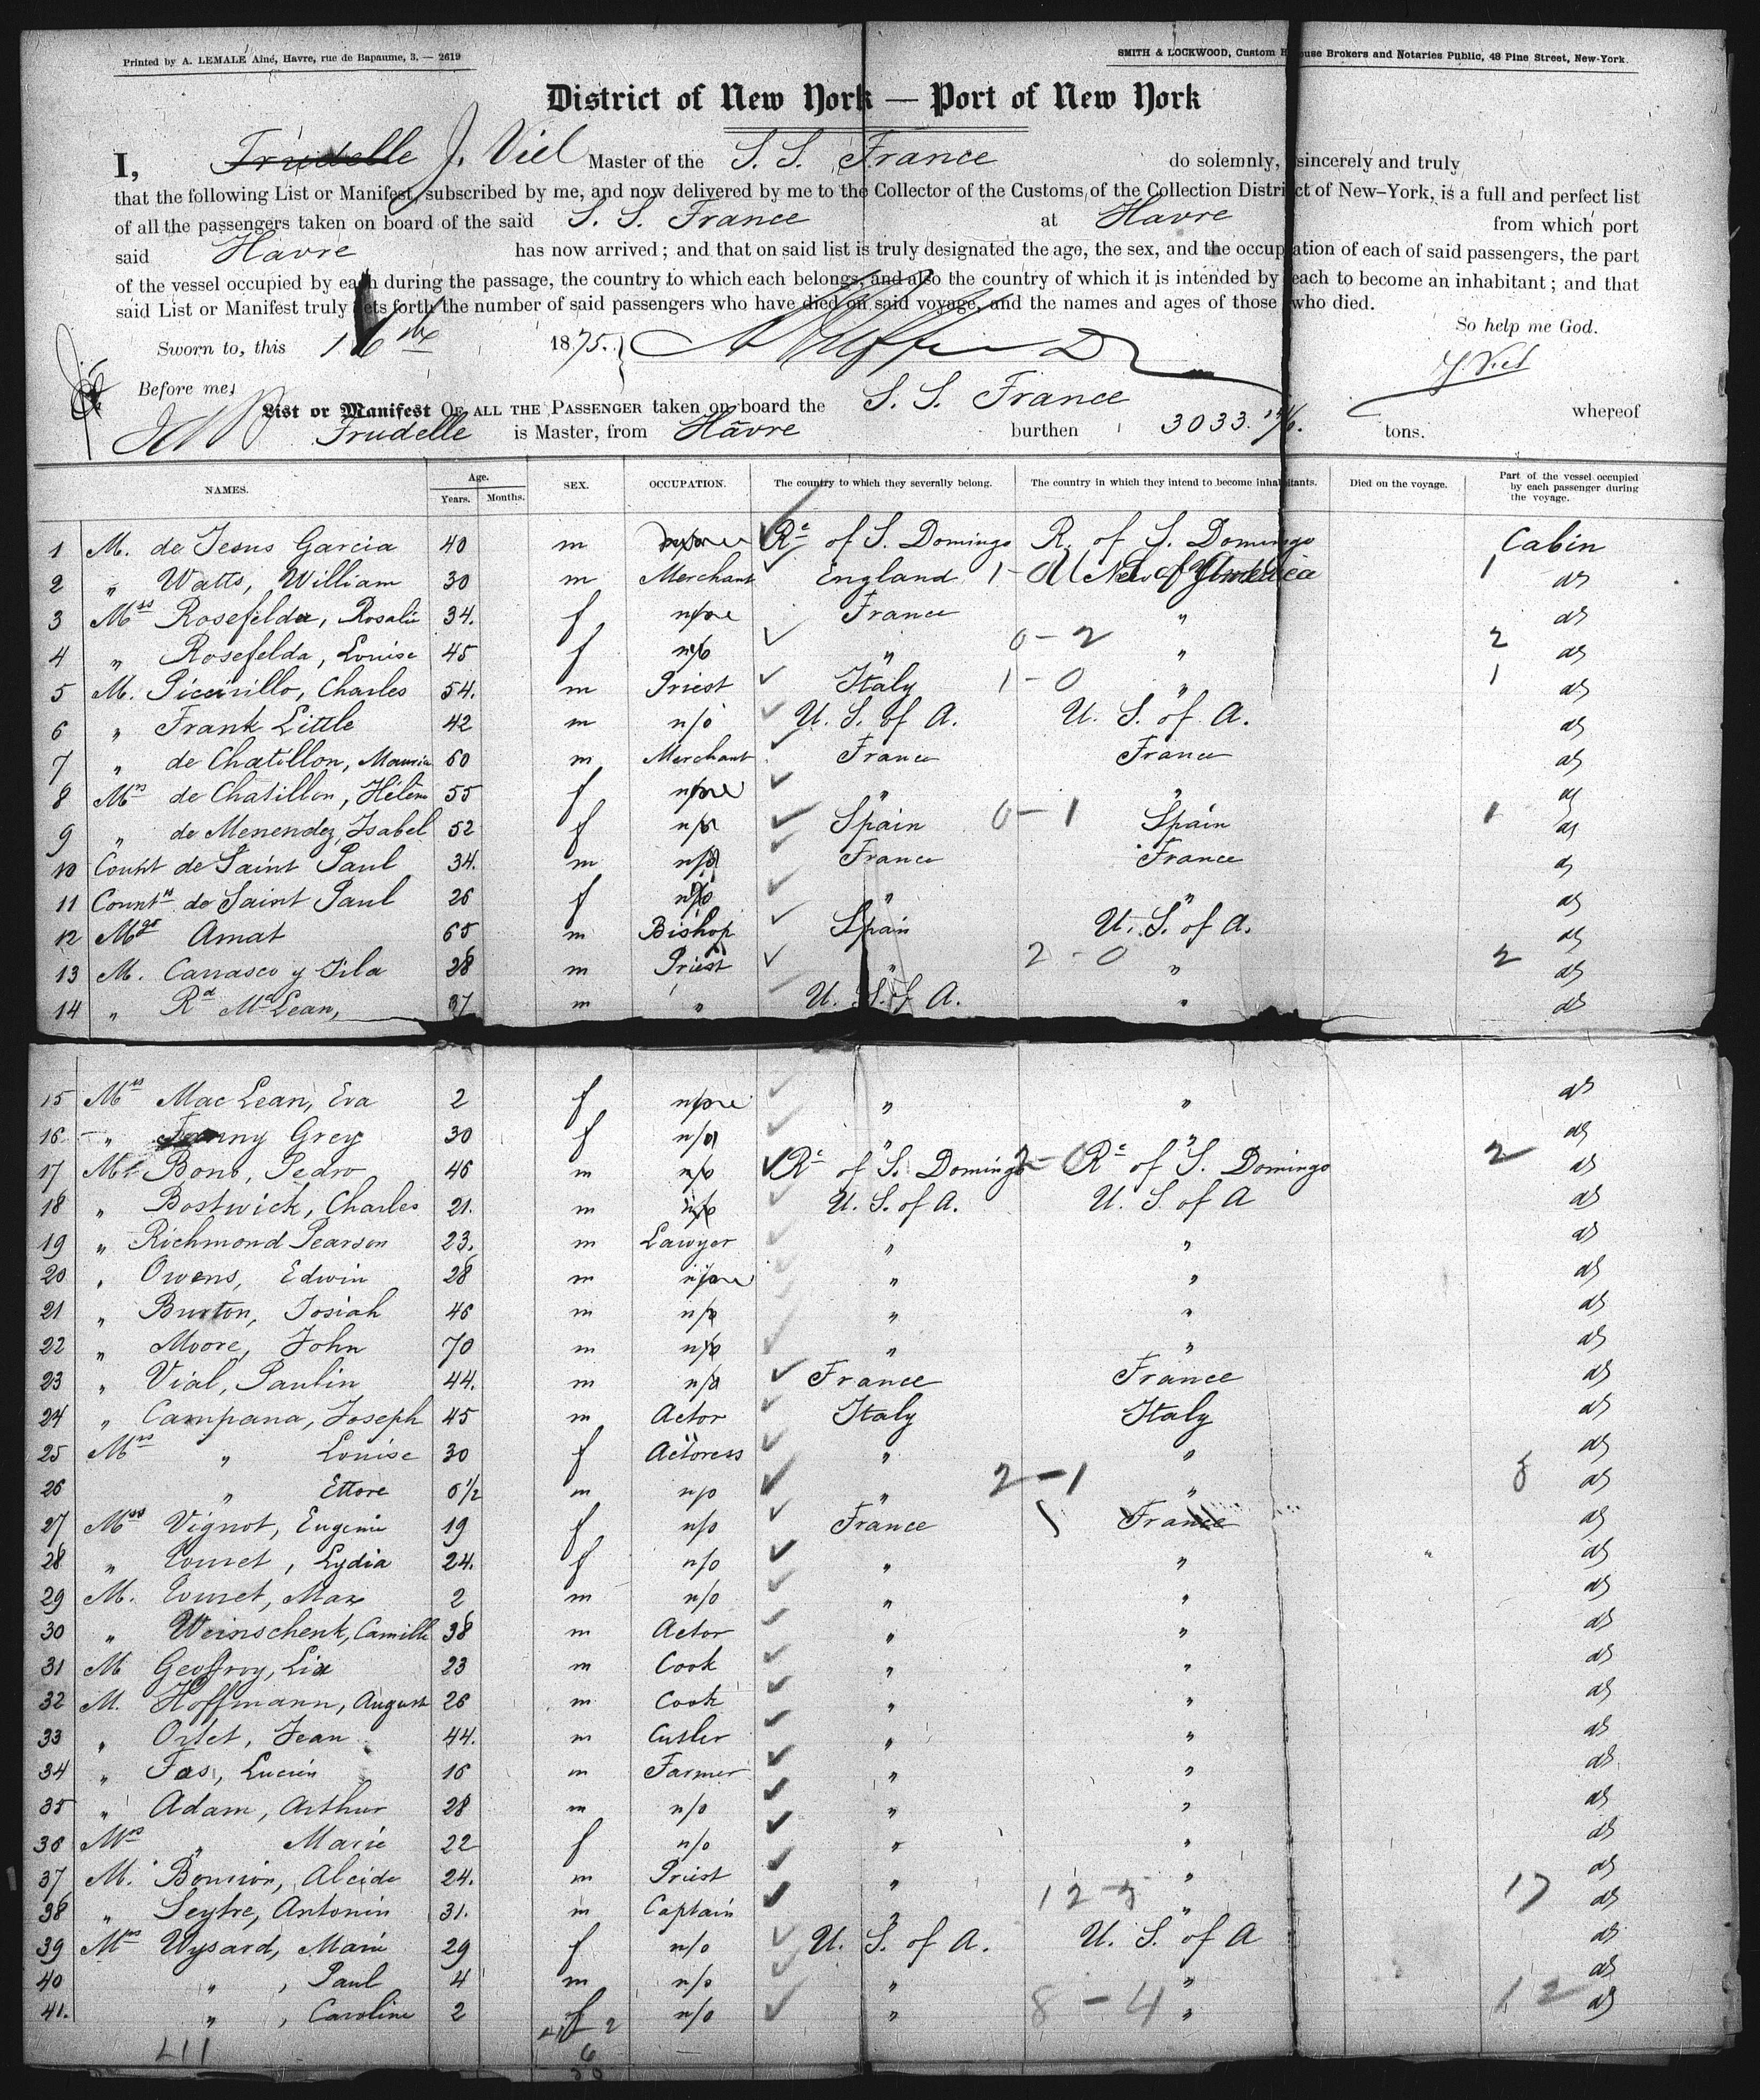 Printed by A. LEMALE Aîné, Havre, rue de Bapaume, 3. — 2619
SMITH & LOCKWOOD, Custom House Brokers and Notaries Public, 48 Pine Street, New-York.
District of New York — Port of New York
I, Trudelle J. Viel Master of the S. S. France do solemnly, sincerely and truly
that the following List or Manifest, subscribed by me, and now delivered by me to the Collector of the Customs, of the Collection District of New-York, is a full and perfect list
of all the passengers taken on board of the said S. S. France at Havre from which port
said Havre has now arrived; and that on said list is truly designated the age, the sex, and the occupation of each of said passengers, the part
of the vessel occupied by each during the passage, the country to which each belongs, and also the country of which it is intended by each to become an inhabitant; and that
said List or Manifest truly sets forth the number of said passengers who have died on said voyage, and the names and ages of those who died.
So help me God.
Sworn to, this 16th 1875.
J. Viel
Before me,
List or Manifest OF ALL THE PASSENGER taken on board the S. S. France whereof
Trudelle is Master, from Havre burthen 3033. tons.
NAMES. Age. Years. Months. SEX. OCCUPATION. The country to which they severally belong. The country in which they intend to become inhabitants. Died on the voyage. Part of the vessel occupied by each passenger during the voyage.
1 M. de Jesus Garcia 40 m Re of S. Domingo R. of S. Domingo Cabin
2 " Watts, William 30 m Merchant England 1- 1 do
3 Mss Rosefelda, Rosalie 34. f none France " do
4 " Rosefelda, Louise 45 f n/o " 0-2 " 2 do
5 M. Piccirillo, Charles 54. m Priest Italy 1-0 " 1 do
6 " Frank Little 42 m n/o U. S. of A. U. S. of A. do
7 " de Chatillon, Maurice 60 m Merchant France France do
8 Mrs de Chatillon, Hélène 55 f none " " do
9 " de Menendez, Isabel 52 f n/o Spain 0-1 Spain 1 do
10 Count de Saint Paul 34. m n/o France France do
11 Countss de Saint Paul 26 f n/o " " do
12 Mgr Amat 65 m Bishop Spain U. S. of A. do
13 M. Carrasco y Sila 28 m Priest " 2-0 " 2 do
14 " Rd McLean, 37 m " U. S. of A. " do
15 Mss Mac Lean, Eva 2 f none " " do
16 " Fanny Grey 30 f n/o " " do
17 Mr Bono, Pedro 46 m n/o Re of S. Domingo Re of S. Domingo 2 do
18 " Bostwick, Charles 21. m n/o U. S. of A. U. S. of A do
19 " Richmond Pearson 23. m Lawyer " " do
20 " Owens, Edwin 28 m none " " do
21 " Burton, Josiah 46 m n/o " " do
22 " Moore, John 70 m n/o " " do
23 " Vial, Paulin 44. m n/o France France do
24 " Campana, Joseph 45 m Actor Italy Italy do
25 Mrs " Louise 30 f Actoress " " do
26 " Ettore 6 1/2 m n/o " 2-1 " do
27 Mss Vignot, Eugenie 19 f n/o France France do
28 " Couret, Lydia 24. f n/o " " do
29 M. Couret, Max 2 m n/o " " do
30 " Weinschenk, Camille 38 m Actor " " do
31 M Geoffroy, Lix 23 m Cook " " do
32 M. Hoffmann, August 26 m Cook " " do
33 " Ortet, Jean 44. m Cutler " " do
34 " Fas, Lucien 16 m Farmer " " do
35 " Adam, Arthur 28 m n/o " " do
36 Mrs " Marie 22 f n/o " " do
37 M. Bonnion, Alcide 24. m Priest " " do
38 " Seytre, Antonin 31. m Captain " 12-5 " 17 do
39 Mrs Wysard, Marie 29 f n/o U. S. of A. U. S. of A do
40 " , Paul 4 m n/o " " do
41. " , Caroline 2 f n/o " 8-4 " 12 do